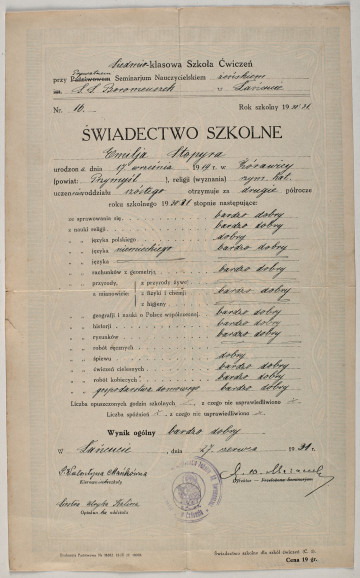 Siedmio-klasowa Szkoła Ćwiczeń
Prywatnem
przy Państwowem Seminarjum Nauczycielskiem żeńskiem
S.S. Boromeuszek w Łańcucie
Nr. 16. Rok szkolny 1930/31.
ŚWIADECTWO SZKOLNE
Emilja Stopyra
urodzona dnia 17 września 1919 r. w Żórawicy
(powiat: Przemyśl), religji (wyznania) rzym. kat.
uczennica oddziału szóstego otrzymuje za drugie półrocze
roku szkolnego 1930/31 stopnie następujące:
ze sprawowania się bardzo dobry
z nauki religji bardzo dobry
„ „ języka polskiego dobry
„ „ języka niemieckiego bardzo dobry
„ „ języka
„ „ rachunków z geometrją bardzo dobry
przyrody, z przyrody żywej
a mianowicie: z fizyki i chemji bardzo dobry
z higjeny
„ „ geografji i nauki o Polsce współczesnej bardzo dobry
„ „ historji bardzo dobry
„ „ rysunków bardzo dobry
„ „ robót ręcznych
„ „ śpiewu dobry
„ „ ćwiczeń cielesnych bardzo dobry
„ „ robót kobiecych bardzo dobry
„ „ gospodarstwa domowego bardzo dobry
Liczba opuszczonych godzin szkolnych z czego nie usprawiedliwiono
Liczba spóźnień z czego nie usprawiedliwiono
Wynik ogólny bardzo dobry
W Łańcucie, dnia 27 czerwca 1931 r.
Kierownik szkoły
Dyrektor
Opiekun oddziału
Świadectwo szkolne dla szkół ćwiczeń
Cena 19 gr.